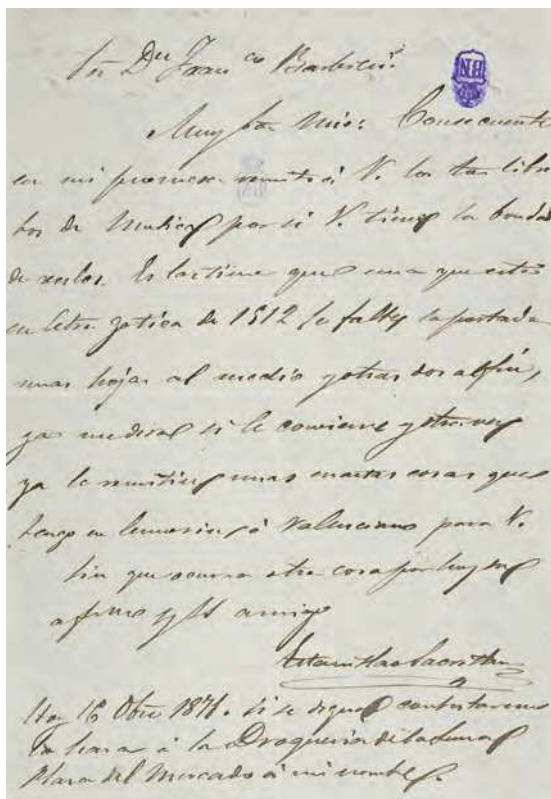 Sor Dn Franco Barbieri.
BN
Muy Sor mio: Consecuente
en mi promesa remito á V. los tres libri
tos de Musica por si V. tiene la bondad
de verlos. Es lastima que uno que está
en letra gotica de 1512 le falten la portada
unas hojas al medio y otras dos al fin,
ya me dirá si le conviene y otra vez
ya le remitiré unas cuantas cosas que
tengo en lemosin ó valenciano para V.
Sin que ocurra otra cosa por hoy su
afmo y SS amigo
Estanislao Sacristan
Hoy 16 Obre 1871. Si se digna contestarme
lo hara á la Drogueria de la Luna
Plaza del Mercado á mi nombre.